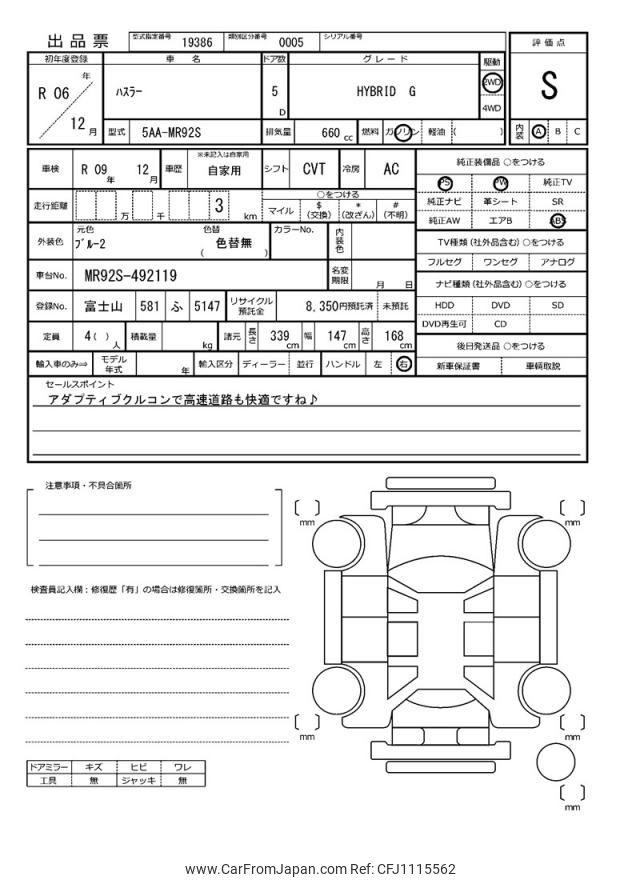 出品票 型式指定番号 19386 類別区分番号 0005 シリアル番号
評価点
S
初年度登録 車名 ドア数 グレード 駆動
R 06 年 12 月
ハスラー
5 D
HYBRID G
2WD
4WD
型式 5AA-MR92S 排気量 660 cc 燃料 ガソリン 軽油 ( )
内装 A B C
車検 R 09 年 12 月 車歴 ※未記入は自家用 自家用 シフト CVT 冷房 AC
走行距離 万 千 3 km
○をつける
マイル $ (交換) * (改ざん) # (不明)
外装色 元色 ブルー2 色替 色替無 ( ) カラーNo. 内装色
車台No. MR92S-492119 名変期限 月 日
登録No. 富士山 581 ふ 5147 リサイクル預託金 8,350円預託済 未預託
定員 4( ) 人 積載量 kg 諸元 長さ 339 cm 幅 147 cm 高さ 168 cm
輸入車のみ⇒ モデル年式 年 輸入区分 ディーラー 並行 ハンドル 左 右
純正装備品 ○をつける
PS PW 純正TV
純正ナビ 革シート SR
純正AW エアB ABS
TV種類 (社外品含む) ○をつける
フルセグ ワンセグ アナログ
ナビ種類 (社外品含む) ○をつける
HDD DVD SD
DVD再生可 CD
後日発送品 ○をつける
新車保証書 車輌取説
セールスポイント
アダプティブクルコンで高速道路も快適ですね♪
注意事項・不具合箇所
検査員記入欄：修復歴「有」の場合は修復箇所・交換箇所を記入
[ ] mm
[ ] mm
[ ] mm
[ ] mm
[ ] mm
ドアミラー キズ ヒビ ワレ
工具 無 ジャッキ 無
www.CarFromJapan.com Ref: CFJ1115562